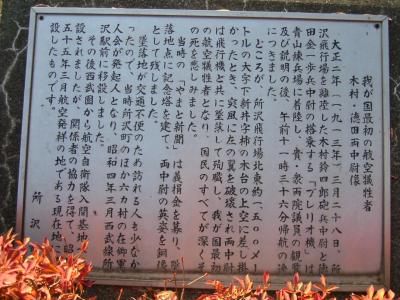 我が国最初の航空犠牲者
木村・徳田両中尉像
大正二年(一九一三年)三月二十八日、所
沢飛行場を離陸した木村鈴四郎砲兵中尉と徳
田金一歩兵中尉の搭乗する「ブレリオ機」は
青山練兵場に着陸し、貴・衆両院議員の観覧
及び説明の後、午前十一時三十六分帰航の途
につきました。
ところが、所沢飛行場北東約一、五〇〇メー
トルの大字下新井字柿の木台の上空に差し掛
かったとき、突風に左の翼を破壊され両中尉
は飛行機と共に墜落して殉職し、我が国最初
の航空犠牲者となり、国民のすべてが深くそ
の死を悲しみました。
当時の「やまと新聞」は義捐金を募り、墜
落地点に記念塔を建て、両中尉の英姿を銅像
として残しました。
墜落地が交通不便のため訪れる人も少なか
ったので、当時所沢町のほか六カ村の在郷軍
人会が発起人となり、昭和四年三月西武線所
沢駅前に移設しました。
その後西武園から航空自衛隊入間基地に移
設されましたが、関係者の協力を得て、昭和
五十五年三月航空発祥の地である現在地に
設したものです。
所沢